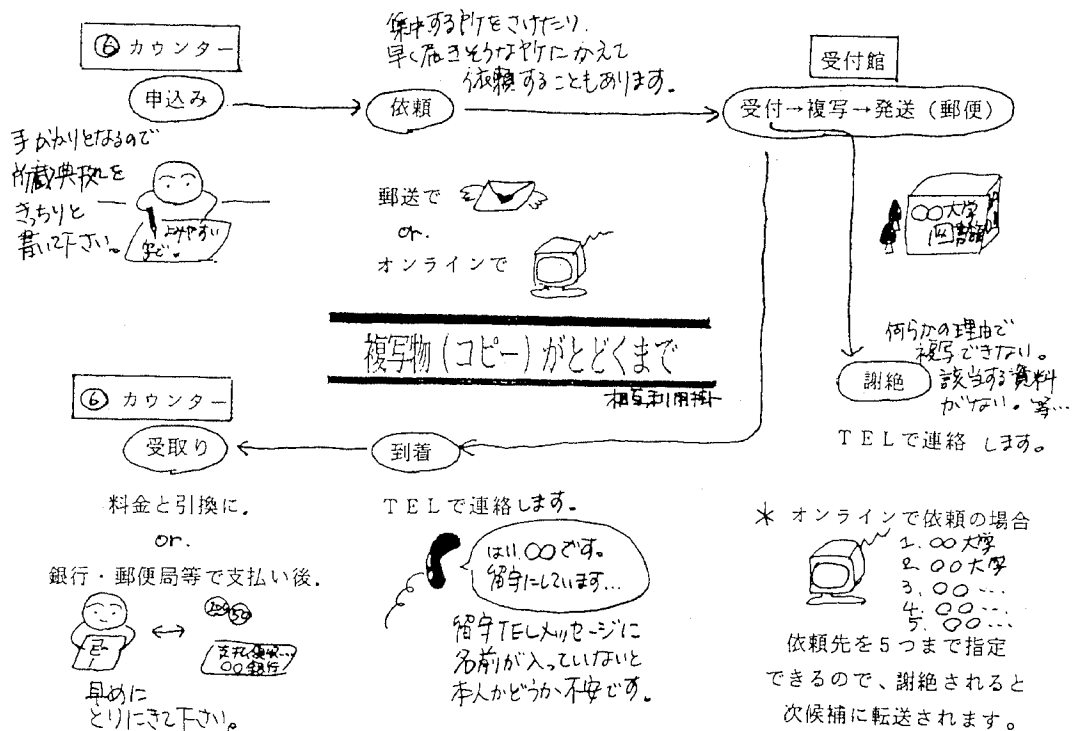 ⑥ カウンター
申込み
手がかりとなるので
所蔵典拠を
きっちりと
書いて下さい。
よみやすい
字で。
集中する所をさけたり、
早く届きそうな所にかえて
依頼することもあります。
依頼
郵送で
or.
オンラインで
受付館
受付→複写→発送（郵便）
○○大学
図書館
何らかの理由で
複写できない。
該当する資料
がない。等…
謝絶
TELで連絡します。
複写物（コピー）がとどくまで
相互利用掛
⑥ カウンター
受取り
料金と引換に.
or.
銀行・郵便局等で支払い後.
○○銀行
早めに
とりにきて下さい。
到着
TELで連絡します。
はい、○○です。
留守にしています…
留守TELメッセージに
名前が入っていないと
本人かどうか不安です。
＊ オンラインで依頼の場合
1. ○○大学
2. ○○大学
3. ○○…
4. ○○…
5. ○○…
依頼先を5つまで指定
できるので、謝絶されると
次候補に転送されます。